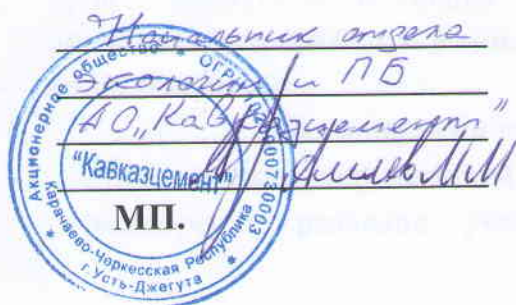 Начальник отдела
экологии и ПБ
АО „Кавказцемент"
М.М
МП.
Акционерное общество * ОГРН
00730003
"Кавказцемент"
Карачаево-Черкесская Республика
* г.Усть-Джегута *